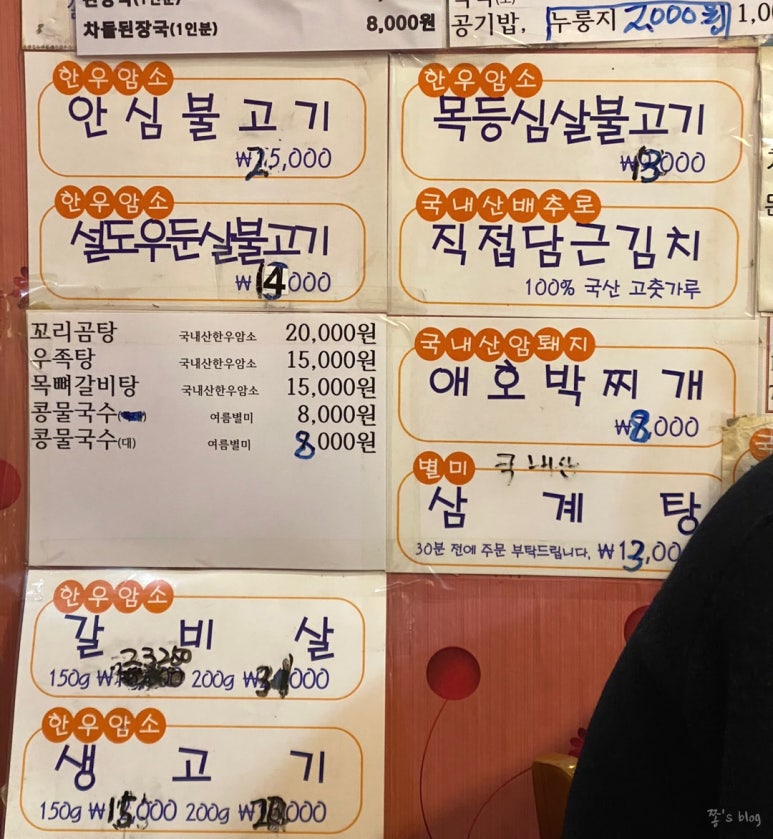 된장국(1인분)
차돌된장국(1인분) 8,000원
공기밥, 누룽지 2,000원 1,0
한우암소
안심불고기
₩25,000
한우암소
설도우둔살불고기
₩14,000
한우암소
목등심살불고기
₩13,000
국내산배추로
직접담근김치
100% 국산 고춧가루
꼬리곰탕 국내산한우암소 20,000원
우족탕 국내산한우암소 15,000원
목뼈갈비탕 국내산한우암소 15,000원
콩물국수 여름별미 8,000원
콩물국수(대) 여름별미 8,000원
국내산암퇘지
애호박찌개
₩8,000
별미 국내산
삼계탕
30분 전에 주문 부탁드립니다. ₩13,00
한우암소
갈비살
150g ₩23250 200g ₩31,000
한우암소
생고기
150g ₩15,000 200g ₩20,000
쫑's blog